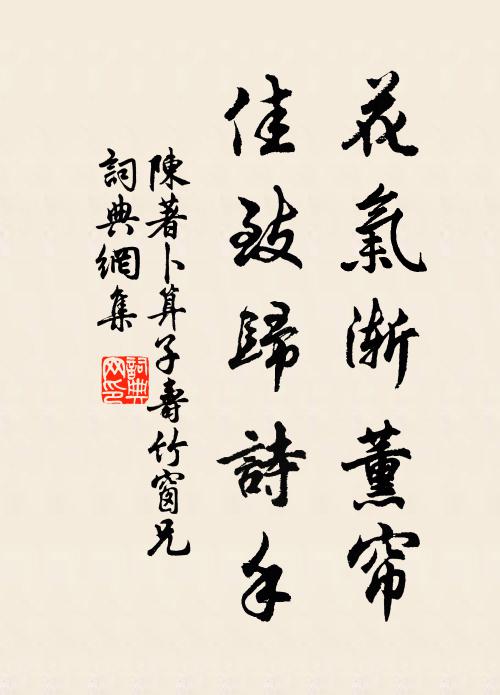 花氣漸薰帘
佳致歸詩手
陳著卜算子壽竹窗兄
詞典網集
詞典网印